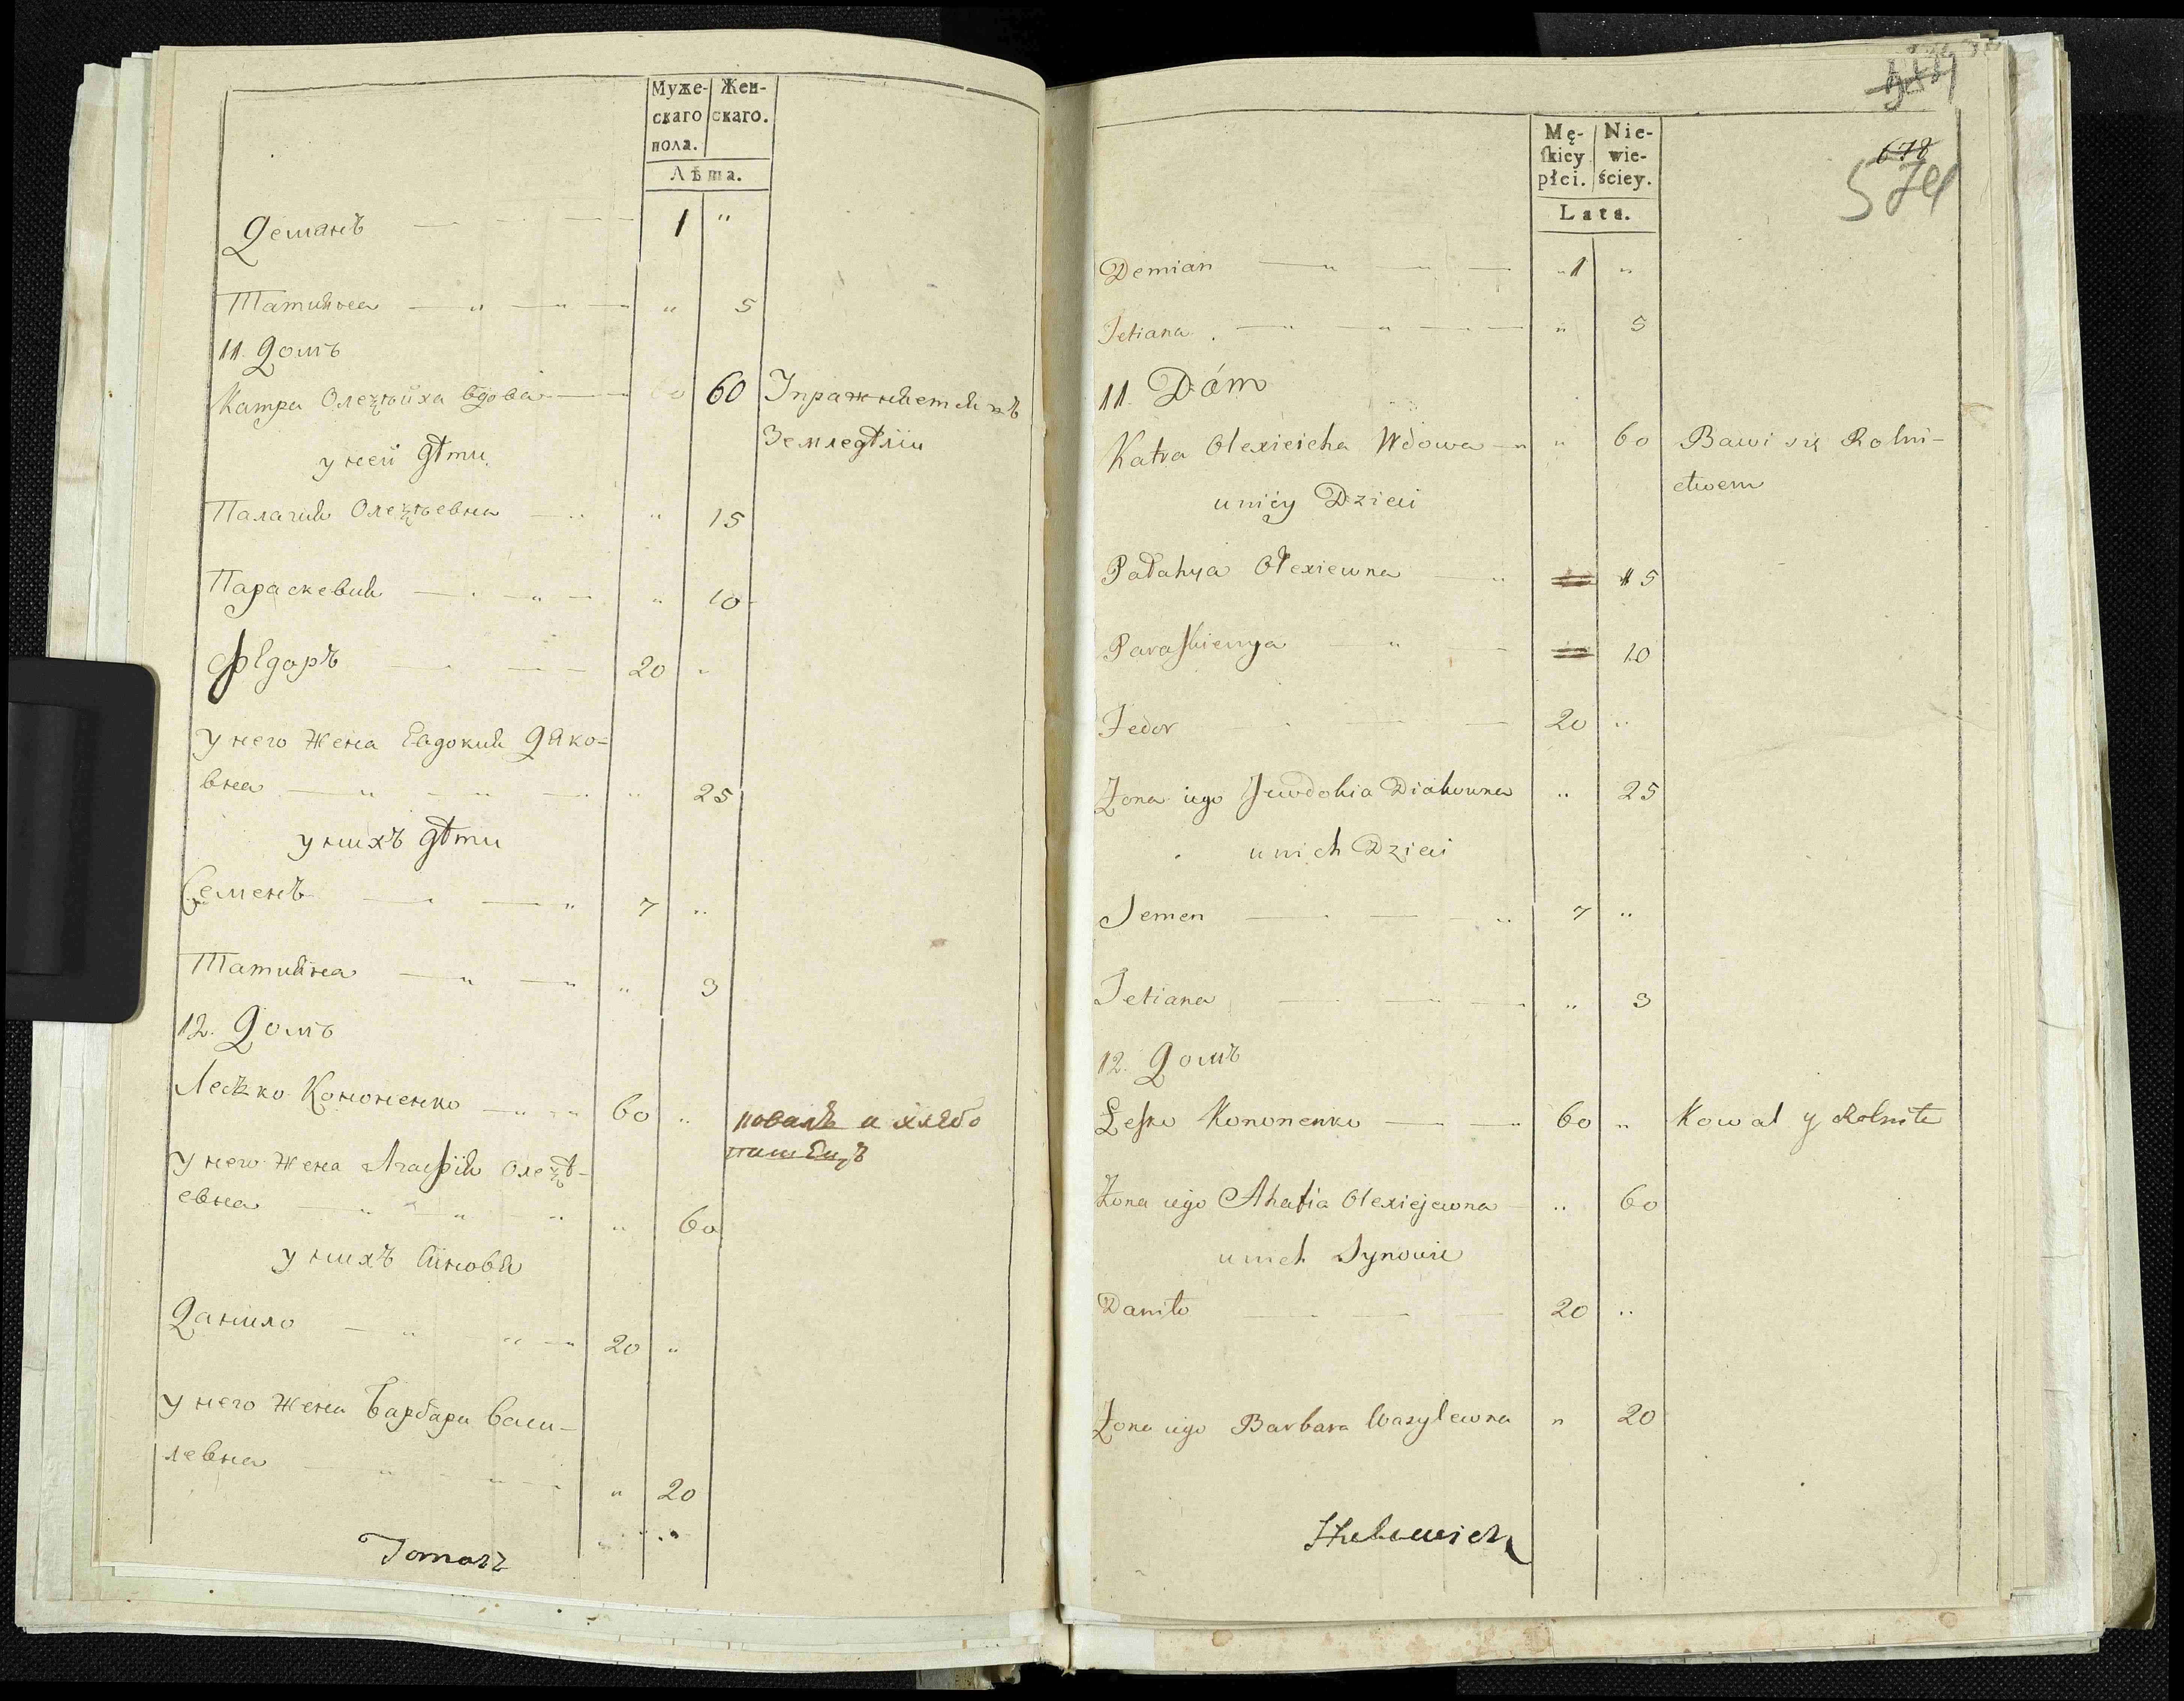 Муже- Жен-
скаго скаго.
пола.
Лѣта.
Демянъ 1 "
Татияна " 5
11. Домъ
Катра Олексѣиха вдова 60 Упражняется въ
Земледѣліи
у ней дѣти
Палагия Олексѣевна " 15
Параскевия " 10
Федоръ 20 "
у него жена Евдокия Дяко=
вна " 25
у нихъ дѣти
Семенъ 7 "
Татияна " 3
12. Домъ
Лесько Кононенко 60 " коваль и хлебо
пашецъ
у него жена Агафія Олексѣ-
евна " 60
у нихъ синовя
Данило 20 "
у него жена Барбара Васи-
левна " 20
Tomasz
Mę- Nie-
skiey wie-
płci. ściey.
Lata.
678
574
Demian " 1 "
Tetiana " 5
11. Dóm
Katra Olexieicha Wdowa " 60 Bawi się Rolni-
ctwem
u niey Dzieci
Pałahya Ołexiewna 15
Paraskiewya 10
Fedor 20 "
Żona iego Jewdokia Diakowna " 25
u nich Dzieci
Semen 7 "
Tetiana " 3
12. Домъ
Lesko Kononenko 60 " Kowal y Rolnik
Żona iego Ahafia Olexiejewna " 60
u nich Synowie
Daniło 20 "
Żona iego Barbara Wasylewna " 20